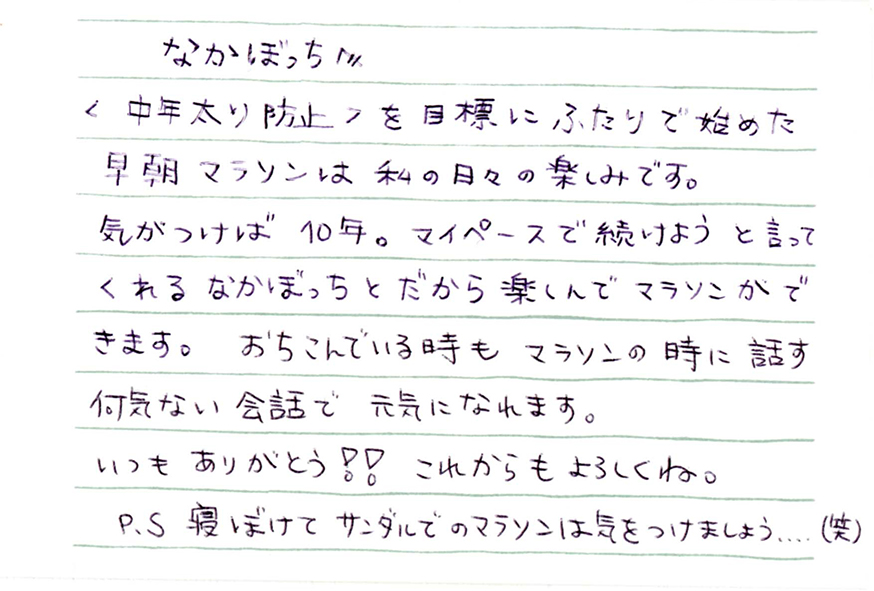 なかぼっち
〈中年太り防止〉を目標にふたりで始めた
早朝マラソンは私の日々の楽しみです。
気がつけば10年。マイペースで続けようと言って
くれるなかぼっちとだから楽しんでマラソンがで
きます。おちこんでいる時もマラソンの時に話す
何気ない会話で元気になれます。
いつもありがとう!!これからもよろしくね。
P.S 寝ぼけてサンダルでのマラソンは気をつけましょう....(笑)